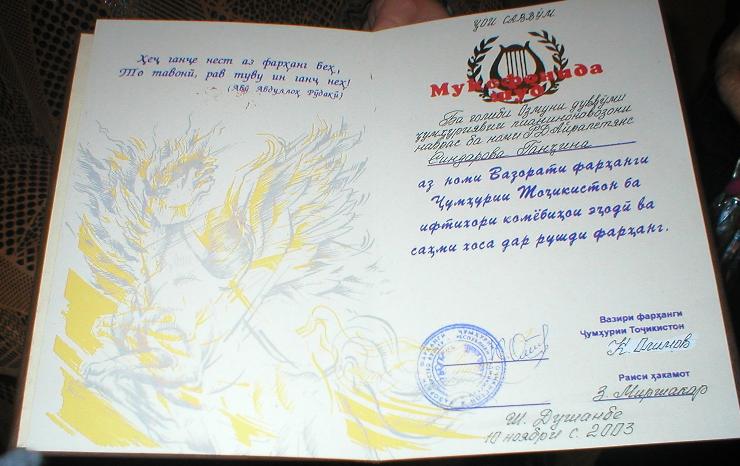 Ҳеҷ ганҷе нест аз фарҳанг беҳ,
То тавонӣ, рав туву ин ганҷ неҳ!
(Абӯ Абдуллоҳ Рӯдакӣ)
ҶОИ САВВӮМ
Мукофонида
шуд
Ба ғолиби Озмуни дуввӯми
ҷумҳуриявии пианинонавозони
наврас ба номи
Синдарова Ганҷина
аз номи Вазорати фарҳанги
Ҷумҳурии Тоҷикистон ба
ифтихори комёбиҳои эҷодӣ ва
саҳми хоса дар рушди фарҳанг.
Вазири фарҳанги
Ҷумҳурии Тоҷикистон
К. Олимов
Раиси ҳакамот
З. Миршакар
Ш. Душанбе
10 ноябри с. 2003